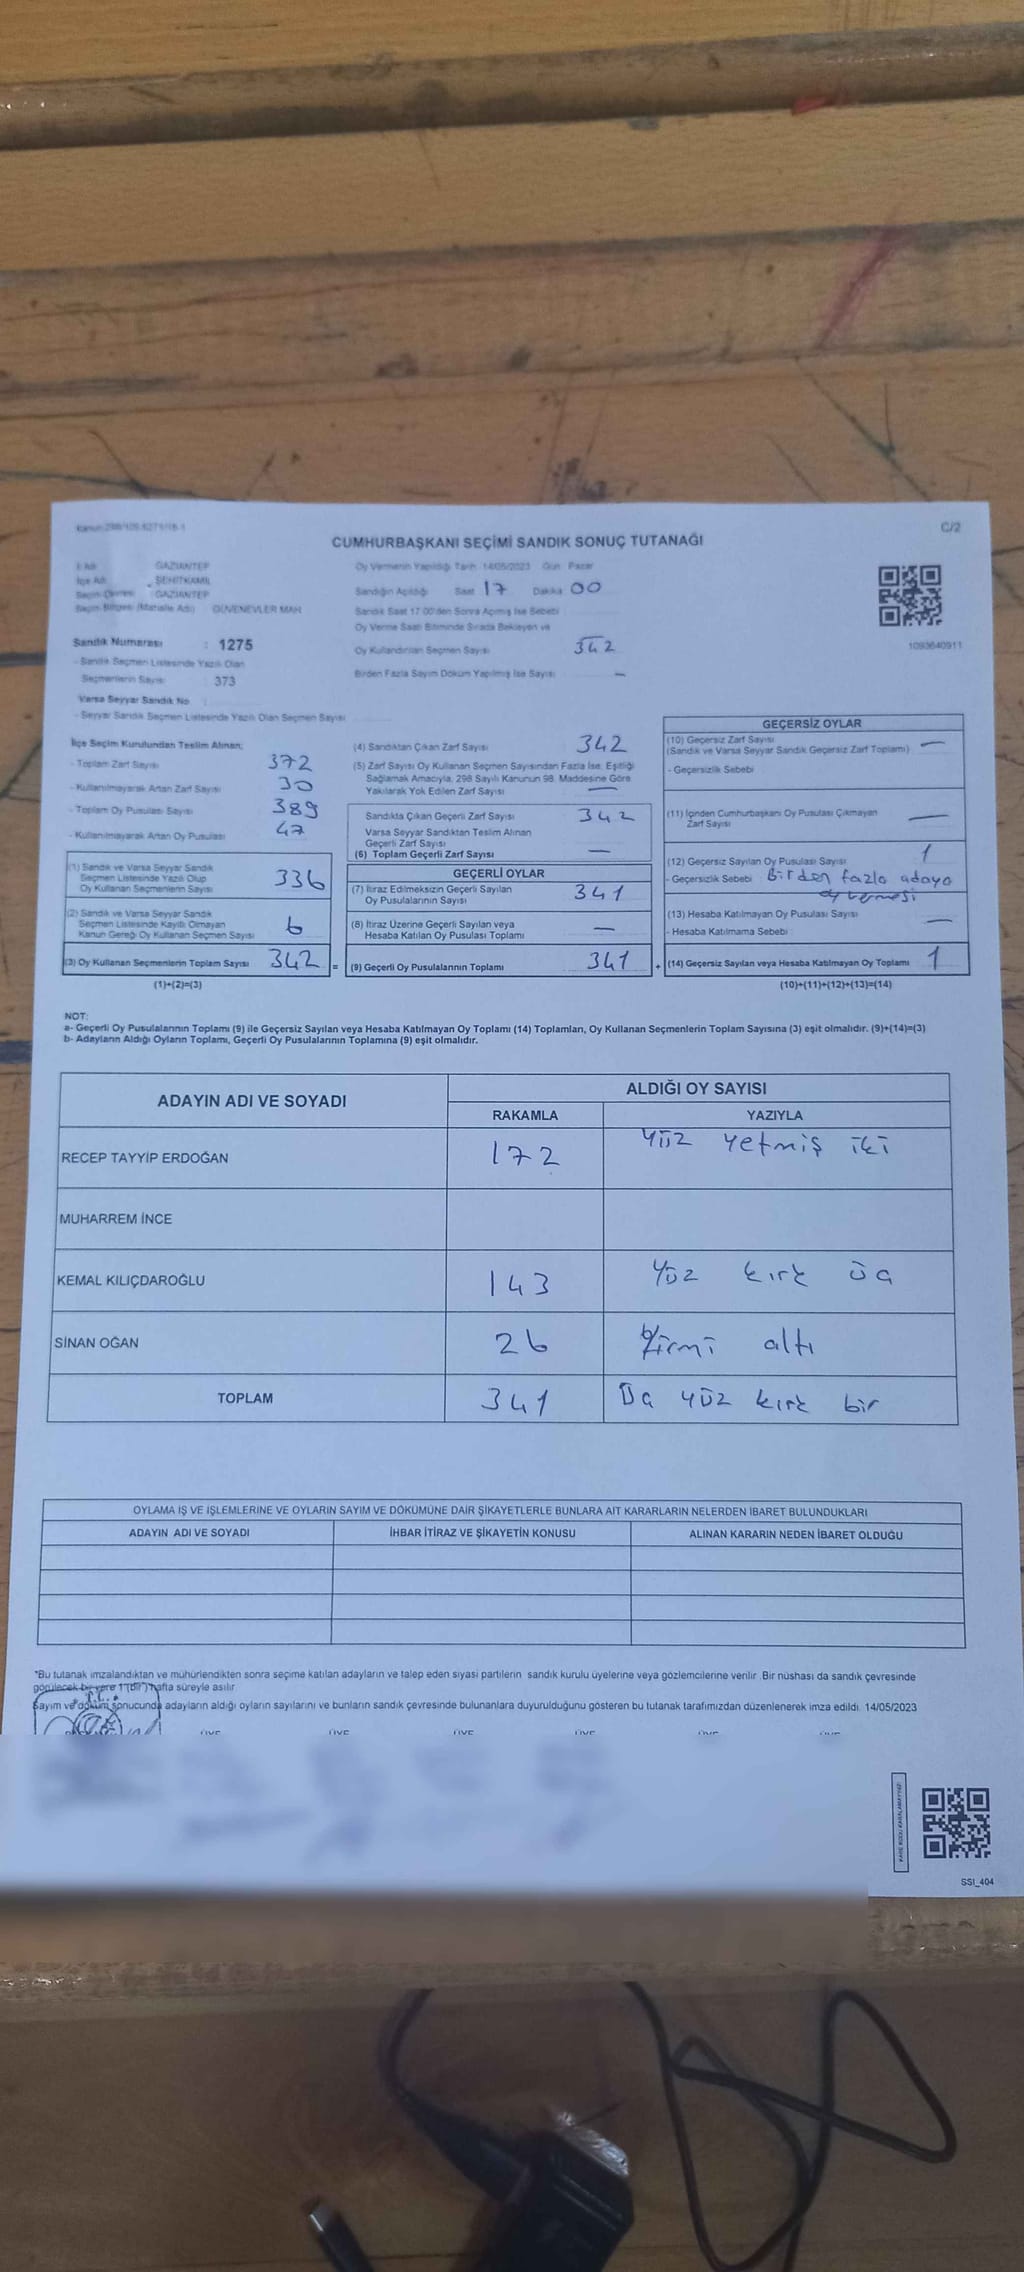 Kanun:298/105,6271/16-1
C/2
CUMHURBAŞKANI SEÇİMİ SANDIK SONUÇ TUTANAĞI
İl Adı GAZİANTEP
İlçe Adı ŞEHİTKAMİL
Seçim Çevresi GAZİANTEP
Seçim Bölgesi (Mahalle Adı) GÜVENEVLER MAH
Sandık Numarası : 1275
- Sandık Seçmen Listesinde Yazılı Olan
Seçmenlerin Sayısı : 373
Varsa Seyyar Sandık No
- Seyyar Sandık Seçmen Listesinde Yazılı Olan Seçmen Sayısı
Oy Vermenin Yapıldığı Tarih: 14/05/2023 Gün: Pazar
Sandığın Açıldığı Saat 17 Dakika 00
Sandık Saat 17.00'den Sonra Açılmış İse Sebebi
Oy Verme Saati Bitiminde Sırada Bekleyen ve
Oy Kullandırılan Seçmen Sayısı 342
Birden Fazla Sayım Döküm Yapılmış İse Sayısı —
1093640911
İlçe Seçim Kurulundan Teslim Alınan;
- Toplam Zarf Sayısı 372
- Kullanılmayarak Artan Zarf Sayısı 30
- Toplam Oy Pusulası Sayısı 389
- Kullanılmayarak Artan Oy Pusulası 47
(1) Sandık ve Varsa Seyyar Sandık
Seçmen Listesinde Yazılı Olup
Oy Kullanan Seçmenlerin Sayısı 336
(2) Sandık ve Varsa Seyyar Sandık
Seçmen Listesinde Kayıtlı Olmayan
Kanun Gereği Oy Kullanan Seçmen Sayısı 6
(3) Oy Kullanan Seçmenlerin Toplam Sayısı 342
(1)+(2)=(3)
(4) Sandıktan Çıkan Zarf Sayısı 342
(5) Zarf Sayısı Oy Kullanan Seçmen Sayısından Fazla İse, Eşitliği
Sağlamak Amacıyla, 298 Sayılı Kanunun 98. Maddesine Göre
Yakılarak Yok Edilen Zarf Sayısı —
Sandıkta Çıkan Geçerli Zarf Sayısı 342
Varsa Seyyar Sandıktan Teslim Alınan
Geçerli Zarf Sayısı
(6) Toplam Geçerli Zarf Sayısı —
GEÇERLİ OYLAR
(7) İtiraz Edilmeksizin Geçerli Sayılan
Oy Pusulalarının Sayısı 341
(8) İtiraz Üzerine Geçerli Sayılan veya
Hesaba Katılan Oy Pusulası Toplamı —
= (9) Geçerli Oy Pusulalarının Toplamı 341
GEÇERSİZ OYLAR
(10) Geçersiz Zarf Sayısı —
(Sandık ve Varsa Seyyar Sandık Geçersiz Zarf Toplamı)
- Geçersizlik Sebebi
(11) İçinden Cumhurbaşkanı Oy Pusulası Çıkmayan
Zarf Sayısı —
(12) Geçersiz Sayılan Oy Pusulası Sayısı 1
- Geçersizlik Sebebi Birden fazla adaya
oy vermesi
(13) Hesaba Katılmayan Oy Pusulası Sayısı —
- Hesaba Katılmama Sebebi
+ (14) Geçersiz Sayılan veya Hesaba Katılmayan Oy Toplamı 1
(10)+(11)+(12)+(13)=(14)
NOT:
a- Geçerli Oy Pusulalarının Toplamı (9) ile Geçersiz Sayılan veya Hesaba Katılmayan Oy Toplamı (14) Toplamları, Oy Kullanan Seçmenlerin Toplam Sayısına (3) eşit olmalıdır. (9)+(14)=(3)
b- Adayların Aldığı Oyların Toplamı, Geçerli Oy Pusulalarının Toplamına (9) eşit olmalıdır.
ADAYIN ADI VE SOYADI
ALDIĞI OY SAYISI
RAKAMLA YAZIYLA
RECEP TAYYİP ERDOĞAN 172 yüz yetmiş iki
MUHARREM İNCE
KEMAL KILIÇDAROĞLU 143 yüz kırk üç
SİNAN OĞAN 26 yirmi altı
TOPLAM 341 Üç yüz kırk bir
OYLAMA İŞ VE İŞLEMLERİNE VE OYLARIN SAYIM VE DÖKÜMÜNE DAİR ŞİKAYETLERLE BUNLARA AİT KARARLARIN NELERDEN İBARET BULUNDUKLARI
ADAYIN ADI VE SOYADI İHBAR İTİRAZ VE ŞİKAYETİN KONUSU ALINAN KARARIN NEDEN İBARET OLDUĞU
*Bu tutanak imzalandıktan ve mühürlendikten sonra seçime katılan adayların ve talep eden siyasi partilerin sandık kurulu üyelerine veya gözlemcilerine verilir. Bir nüshası da sandık çevresinde
görülecek bir yere 1 (bir) hafta süreyle asılır.
Sayım ve döküm sonucunda adayların aldığı oyların sayılarını ve bunların sandık çevresinde bulunanlara duyurulduğunu gösteren bu tutanak tarafımızdan düzenlenerek imza edildi. 14/05/2023
T.C.
ÜYE ÜYE ÜYE ÜYE ÜYE ÜYE
SSI_404